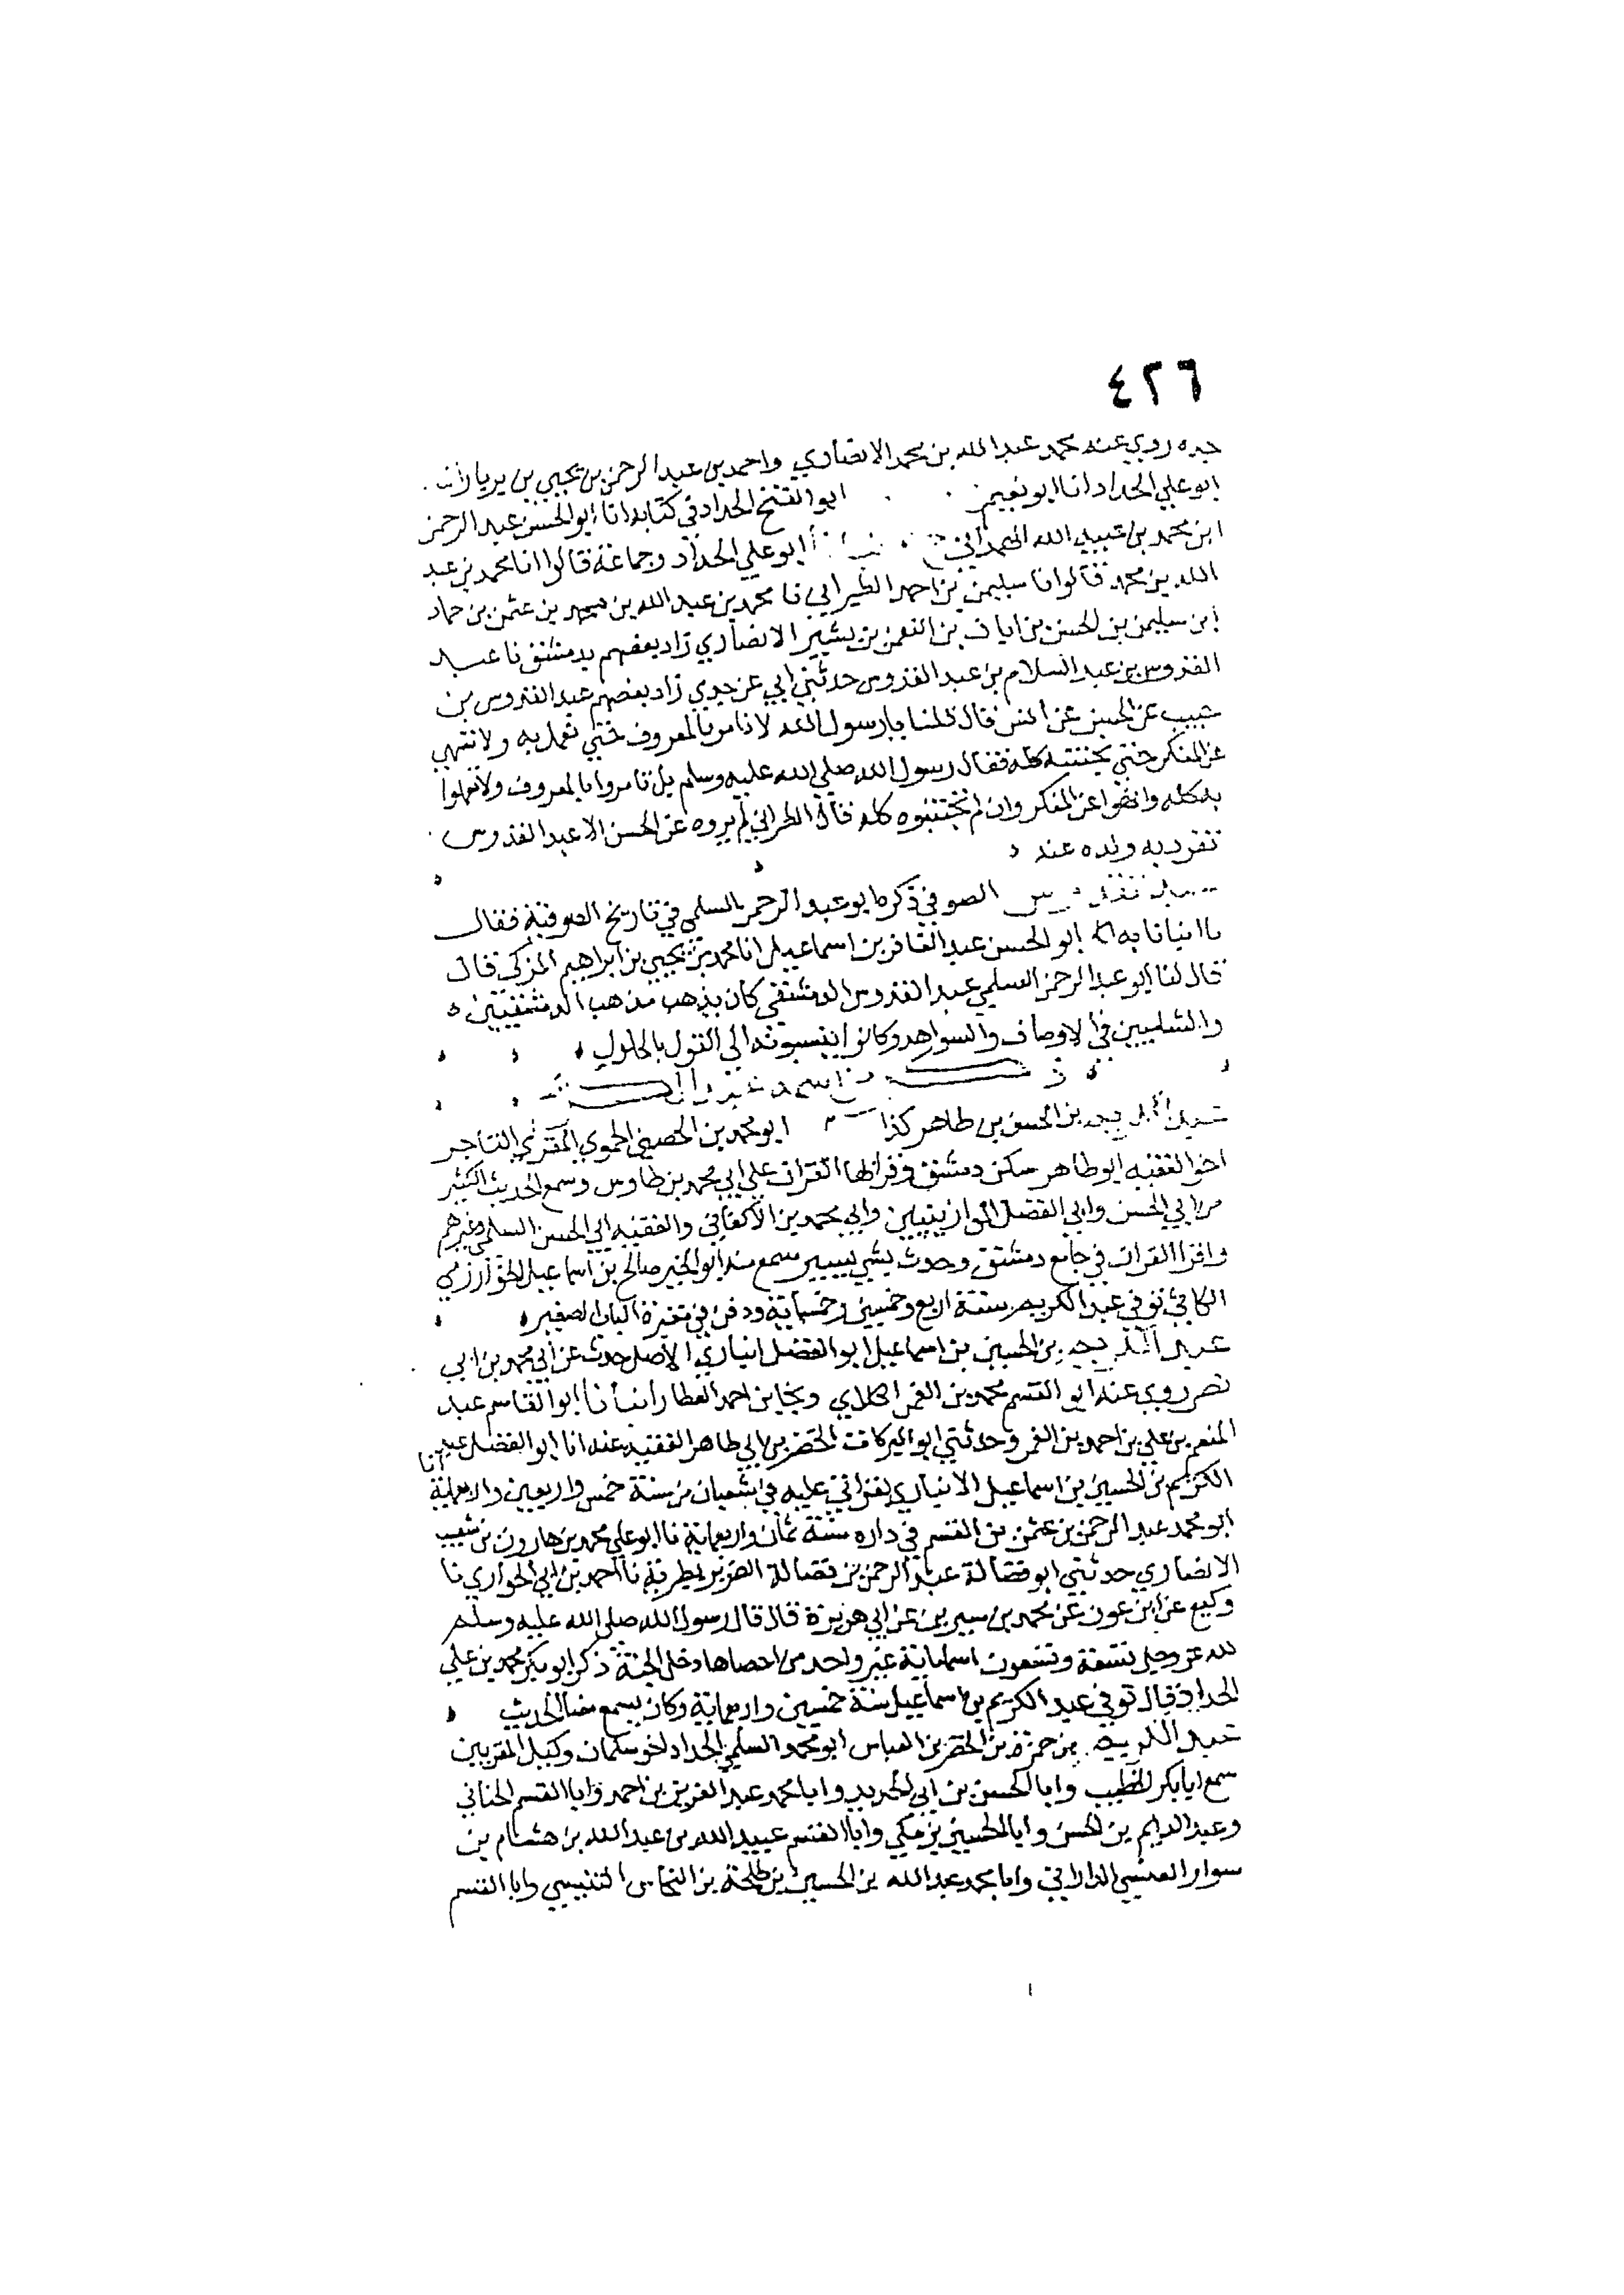 ٤٢٦
جده روي عنه محمد عبد الله بن محمد الانصاري واحمد بن عبد الرحمن بن يحيي بن
ابو علي الحداد انا ابو نعيم ابو الفتح الحداد في كتابه انا ابو الحسن عبد الرحمن
ابن محمد بن عبيد الله الهمداني ابو علي الحداد وجماعة قالوا انا محمد بن عبد
الله بن محمد قالوا نا سليمن بن احمد الطبراني نا محمد بن عبد الله بن محمد بن عثمن بن حماد
ابن سليمن بن الحسن بن ابان بن النعمن بن بشير الانصاري زاد بعضهم بدمشق نا عبد
القدوس بن عبد السلام بن عبد القدوس حدثني ابي عن جدي زاد بعضهم عبد القدوس بن
حبيب عن الحسن عن انس قال قلنا يا رسول الله لا نامر بالمعروف حتي نعمل به ولا ننتهي
عن المنكر حتي نجتنبه كله فقال رسول الله صلي الله عليه وسلم بل تامروا بالمعروف ولا تعملوا
به كله وانهوا عن المنكر وان لم تجتنبوه كله قال الطبراني لم يروه عن الحسن الا عبد القدوس
تفرد به ولده عنه
الصوفي ذكره ابو عبد الرحمن السلمي في تاريخ الصوفية فقال
ما انبانا به ابو الحسن عبد الغافر بن اسماعيل انا محمد بن يحيي بن ابراهيم المزكي قال
قال لنا ابو عبد الرحمن السلمي عبد القدوس الدمشقي كان يذهب مذهب الدمشقيين
والشاميين في الاوصاف والشواهد وكانوا ينسبونه الي القول بالحلول
ذكر من اسمه عبد الكريم
عبد الكريم بن الحسن بن طاهر كذا ابو محمد بن الحصني الحموي المقري التاجر
اخو الفقيه ابو طاهر سكن دمشق وقرا بها القران علي ابي محمد بن طاوس وسمع الحديث الكثير
من ابي الحسن وابي الفضل الموازينيين وابي محمد بن الاكفاني والفقيه ابي الحسن السلمي وغيرهم
واقرا القران في جامع دمشق وحدث بشي يسير سمع منه ابو الخير صالح بن اسماعيل الخوارزمي
الكاثي توفي عبد الكريم سنة اربع وخمسين وخمسماية ودفن في مقبرة الباب الصغير
عبد الكريم بن الحسين بن اسماعيل ابو الفضل انباري الاصل حدث عن ابي محمد بن ابي
نصر روي عنه ابو القسم محمود بن القمر الكلابي ونجا بن احمد العطار انبأنا ابو القاسم عبد
المنعم بن علي بن احمد بن الغمر وحدثني ابو البركات الخضر بن ابي طاهر الفقيه عنه انا ابو الفضل عبد
الكريم بن الحسين بن اسماعيل الانباري بقراتي عليه في شعبان من سنة خمس واربعين واربعماية انا
ابو محمد عبد الرحمن بن عثمن بن القسم في داره سنة ثمان واربعماية نا ابو علي محمد بن هارون بن شعيب
الانصاري حدثني ابو فضالة عبد الرحمن بن فضالة الضرير بطبرية نا احمد بن ابي الحواري نا
وكيع عن ابن عون عن محمد بن سيرين عن ابي هريرة قال قال رسول الله صلي الله عليه وسلم
لله عز وجل تسعة وتسعون اسما ماية غير واحد من احصاها دخل الجنة ذكر ابو بكر محمد بن علي
الحداد قال توفي عبد الكريم بن اسماعيل سنة خمسين واربعماية وكان يسمع معنا الحديث
عبد الكريم بن حمزة بن الخضر بن العباس ابو محمد السلمي الحداد اخو سلمان وكيل المقريين
سمع ابا بكر الخطيب وابا الحسن بن ابي الحديد وابا محمد عبد العزيز بن احمد وابا القسم الحنائي
وعبد الدايم بن الحسن وابا الحسين بن مكي وابا القسم عبيد الله بن عبد الله بن هشام بن
سوار العنسي الداراني وابا محمد عبد الله بن الحسين بن طلحة بن النحاس التنيسي وابا القسم